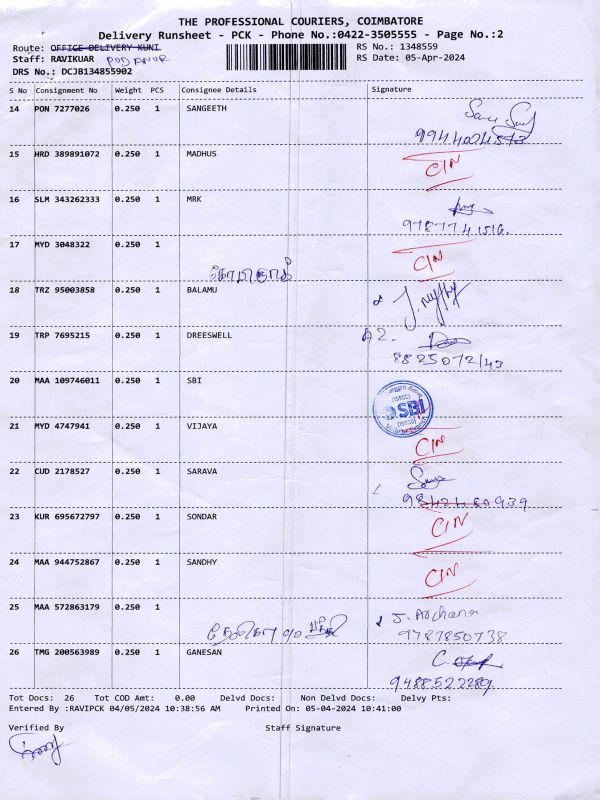 THE PROFESSIONAL COURIERS, COIMBATORE
Delivery Runsheet - PCK - Phone No.:0422-3505555 - Page No.:2
Route: OFFICE DELIVERY KUNI
RS No.: 1348559
Staff: RAVIKUAR PODANUR
RS Date: 05-Apr-2024
DRS No.: DCJB134855902
S No Consignment No Weight PCS Consignee Details Signature
14 PON 7277026 0.250 1 SANGEETH
15 HRD 389891072 0.250 1 MADHUS CIN
16 SLM 343262333 0.250 1 MRK
9787741516.
17 MYD 3048322 0.250 1 CIN
18 TRZ 95003858 0.250 1 BALAMU
19 TRP 7695215 0.250 1 DREESWELL A2.
8825072143
20 MAA 109746011 0.250 1 SBI
SBI
21 MYD 4747941 0.250 1 VIJAYA CIN
22 CUD 2178527 0.250 1 SARAVA
9842480939
23 KUR 695672797 0.250 1 SONDAR CIN
24 MAA 944752867 0.250 1 SANDHY CIN
25 MAA 572863179 0.250 1 J. Archana
9787850738
26 TMG 200563989 0.250 1 GANESAN
9488522289.
Tot Docs: 26 Tot COD Amt: 0.00 Delvd Docs: Non Delvd Docs: Delvy Pts:
Entered By :RAVIPCK 04/05/2024 10:38:56 AM Printed On: 05-04-2024 10:41:00
Verified By Staff Signature